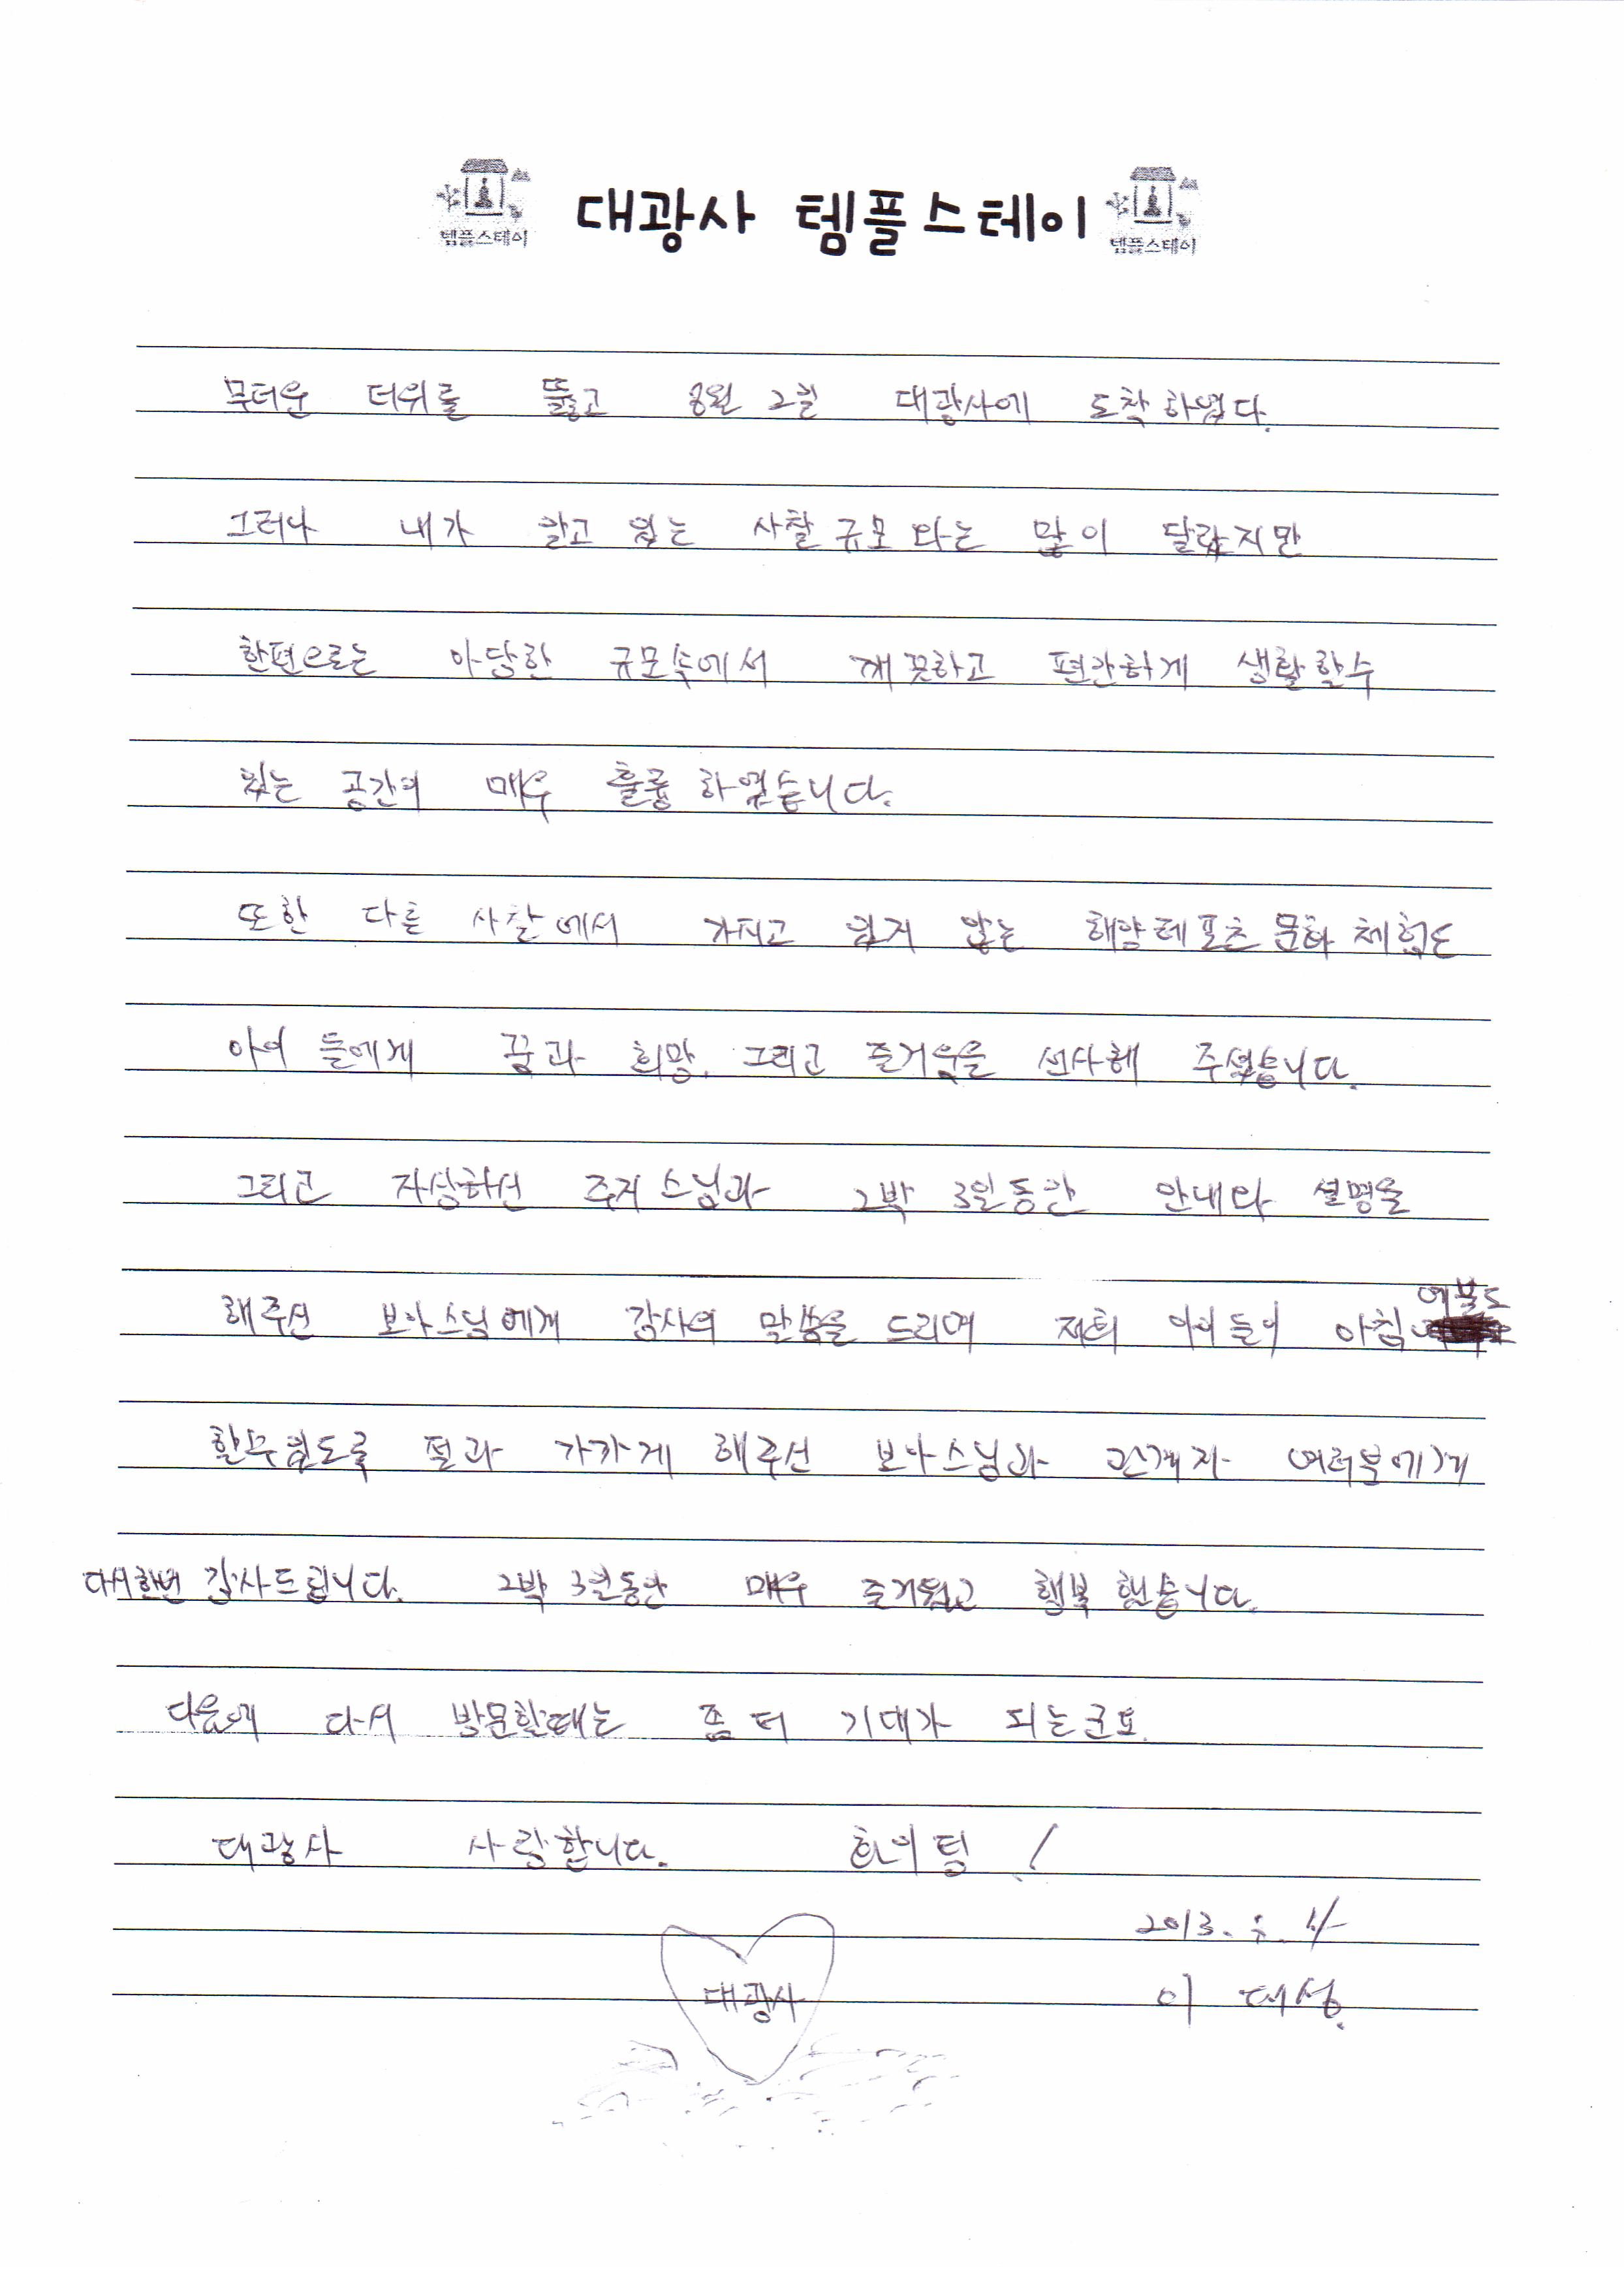 템플스테이 대광사 템플스테이 템플스테이
무더운 더위를 뚫고 8월 2일 대광사에 도착하였다.
그러나 내가 알고 있는 사찰 규모와는 많이 달랐지만
한편으로는 아담한 규모속에서 깨끗하고 편안하게 생활할수
있는 공간이 매우 훌륭하였습니다.
또한 다른 사찰에서 가지고 있지 않는 해양레포츠 문화 체험도
아이들에게 꿈과 희망, 그리고 즐거움을 선사해 주셨습니다.
그리고 자상하신 주지스님과 2박 3일동안 안내와 설명을
해주신 보아스님에게 감사의 말씀을 드리며 저희 아이들이 아침 예불도
할수있도록 절과 가까게 해주신 보아스님과 관계자 여러분에게
다시한번 감사드립니다. 2박 3일동안 매우 즐거웠고 행복했습니다.
다음에 다시 방문할때는 좀 더 기대가 되는군요.
대광사 사랑합니다. 화이팅!
2013.
대광사 이 대성.